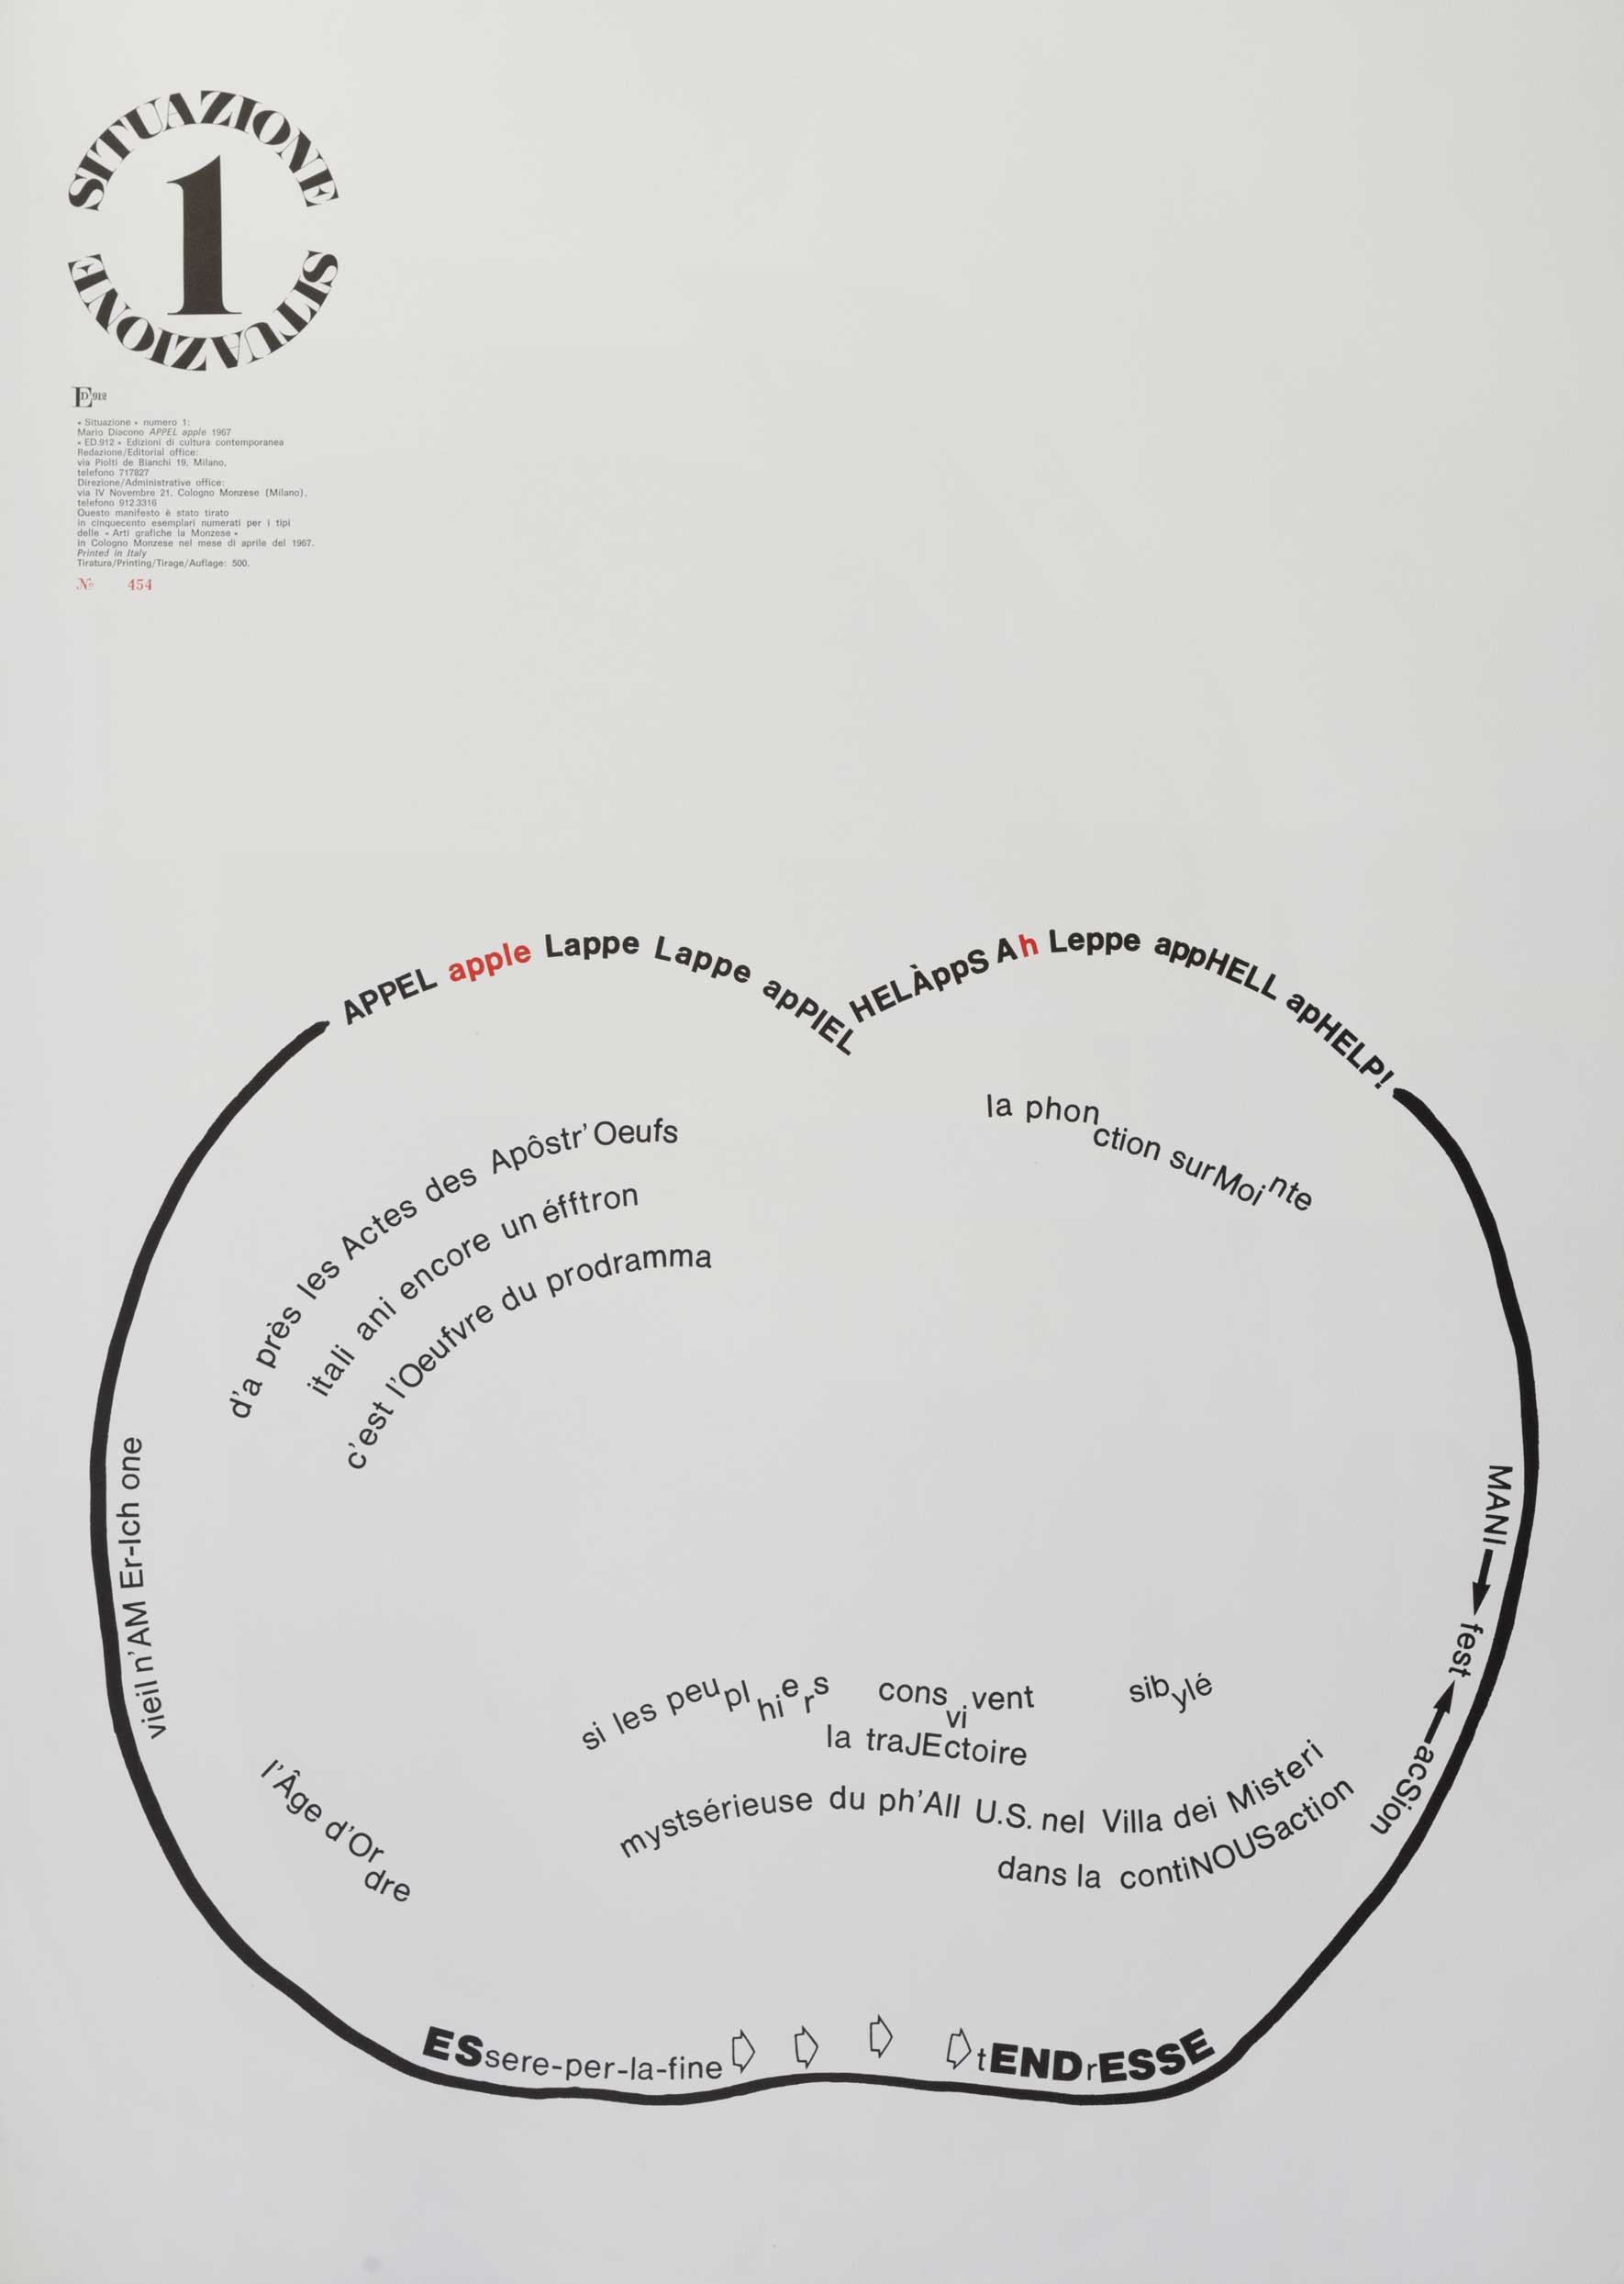 SITUAZIONE
1
SITUAZIONE
ED 912
« Situazione » numero 1:
Mario Diacono APPEL apple 1967
« ED.912 » Edizioni di cultura contemporanea
Redazione/Editorial office:
via Piolti de Bianchi 19, Milano,
telefono 717827
Direzione/Administrative office:
via IV Novembre 21, Cologno Monzese (Milano),
telefono 912.3316
Questo manifesto è stato tirato
in cinquecento esemplari numerati per i tipi
delle « Arti grafiche la Monzese »
in Cologno Monzese nel mese di aprile del 1967.
Printed in Italy
Tiratura/Printing/Tirage/Auflage: 500.
No 454
APPEL apple Lappe Lappe apPIEL
HELÀppS Ah Leppe appHELL apHELP!
la phonction surMointe
d'a près les Actes des Apôstr'Oeufs
itali ani encore un éfftron
c'est l'Oeufvre du prodramma
vieil n'AM Er-Ich one
MANI fest acSion
si les peuplhiers consvivent sibylé
la traJEctoire
mystsérieuse du ph'All U.S. nel Villa dei Misteri
dans la contiNOUSaction
l'Âge d'Or
dre
ESsere-per-la-fine tENDrESSE